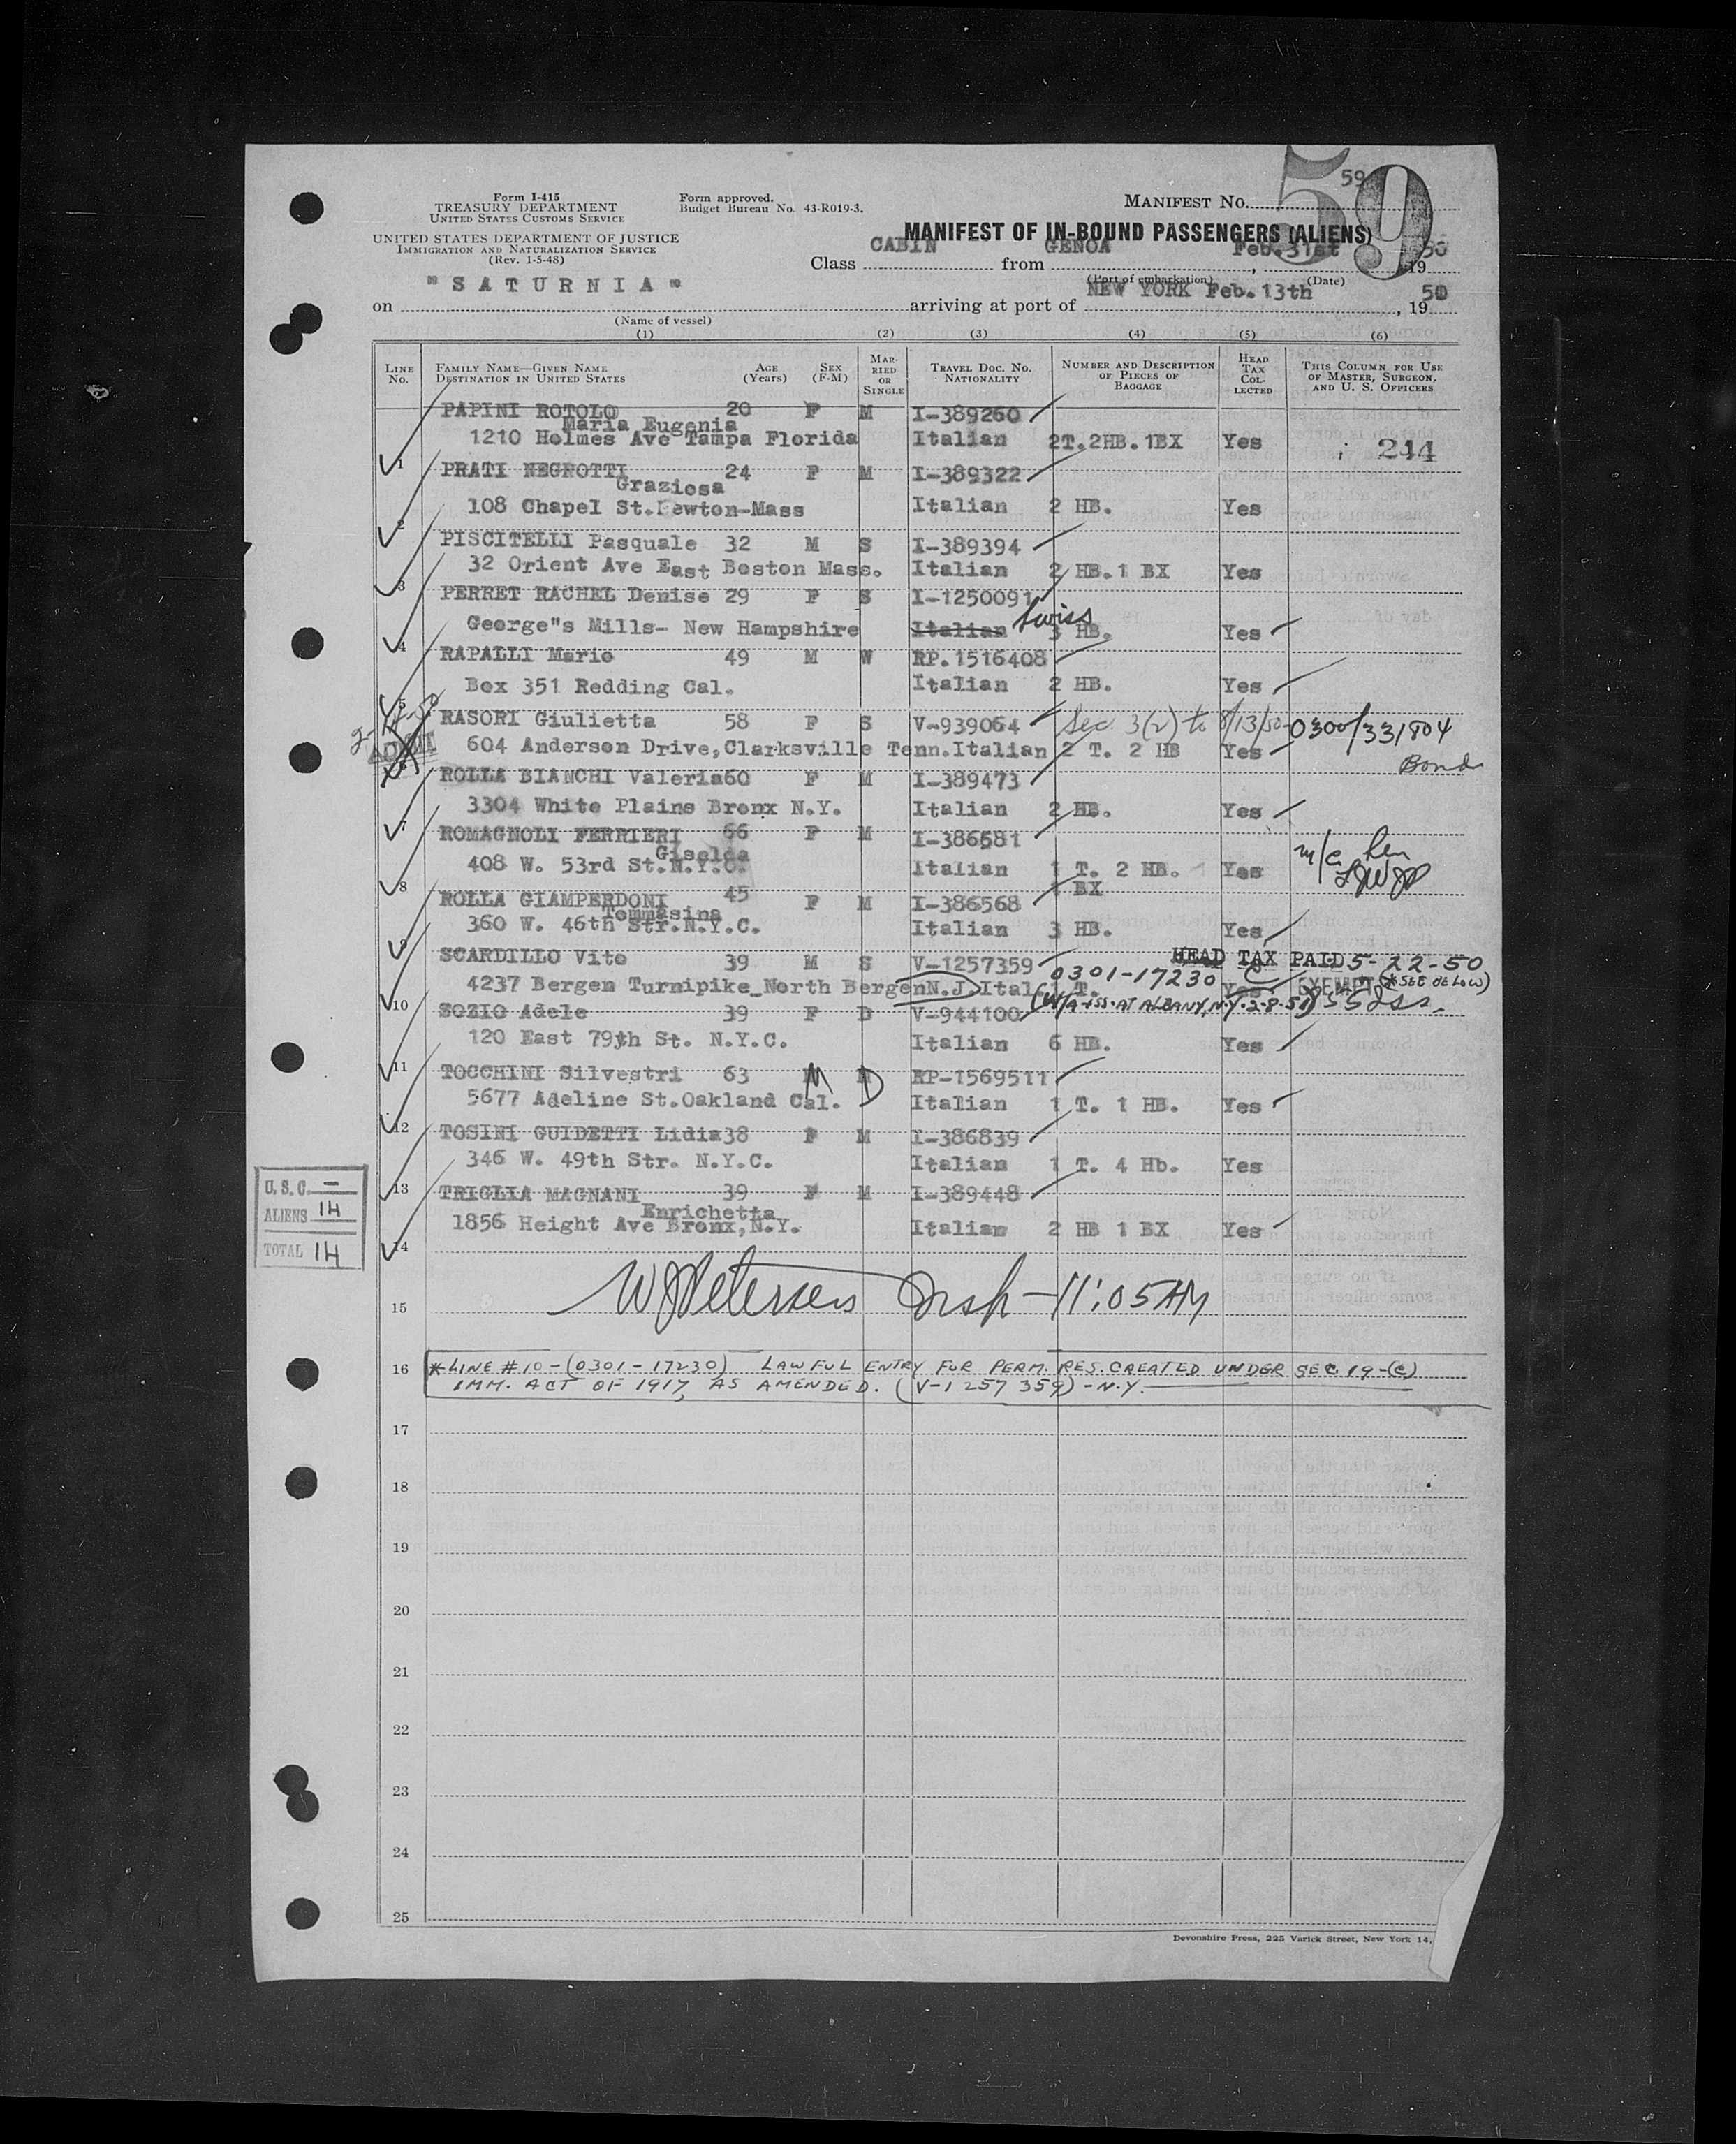 59
Form I-415
TREASURY DEPARTMENT
UNITED STATES CUSTOMS SERVICE
Form approved.
Budget Bureau No. 43-R019-3.
MANIFEST No. 59
UNITED STATES DEPARTMENT OF JUSTICE
IMMIGRATION AND NATURALIZATION SERVICE
(Rev. 1-5-48)
MANIFEST OF IN-BOUND PASSENGERS (ALIENS)
Class CABIN from GENOA Feb. 31st, 19 50
(Port of embarkation) (Date)
on "SATURNIA" arriving at port of NEW YORK Feb. 13th, 19 50
(Name of vessel)
(1) (2) (3) (4) (5) (6)
LINE No. FAMILY NAME—GIVEN NAME DESTINATION IN UNITED STATES AGE (Years) SEX (F-M) MARRIED OR SINGLE TRAVEL DOC. NO. NATIONALITY NUMBER AND DESCRIPTION OF PIECES OF BAGGAGE HEAD TAX COLLECTED THIS COLUMN FOR USE OF MASTER, SURGEON, AND U. S. OFFICERS
PAPINI ROTOLO 20 F M I-389260
Maria Eugenia
1 1210 Holmes Ave Tampa Florida Italian 2T.2HB.1BX Yes 244
PRATI NEGROTTI 24 F M I-389322
Graziosa
2 108 Chapel St.Newton-Mass Italian 2 HB. Yes
PISCITELLI Pasquale 32 M S I-389394
3 32 Orient Ave East Boston Mass. Italian 2 HB.1 BX Yes
PERRET RACHEL Denise 29 F S I-1250091
4 George"s Mills- New Hampshire Italian Swiss 3 HB. Yes
RAPALLI Mario 49 M W RP.1516408
5 Box 351 Redding Cal. Italian 2 HB. Yes
RASORI Giulietta 58 F S V-939064 Sec. 3(2) to 8/13/50 0300/331804
6 604 Anderson Drive,Clarksville Tenn.Italian 2 T. 2 HB Yes Bond
ROLLA BIANCHI Valeria60 F M I-389473
7 3304 White Plains Bronx N.Y. Italian 2 HB. Yes
ROMAGNOLI FERRIERI 66 F M I-386581
Giselda
8 408 W. 53rd St.N.Y.C. Italian 1 T. 2 HB. Yes
1 BX
ROLLA GIAMPERDONI 45 F M I-386568
Tommasina
9 360 W. 46th Str.N.Y.C. Italian 3 HB. Yes
SCARDILLO Vito 39 M S V-1257359 0301-17230 HEAD TAX PAID 5-22-50
10 4237 Bergen Turnipike_North BergenN.J.Ital. 1 T. Yes EXEMPT (*SEE BELOW)
(W/A-ISS. AT ALBANY, N.Y. 2-8-51)
SOZIO Adele 39 F D V-944100
11 120 East 79th St. N.Y.C. Italian 6 HB. Yes
TOCCHINI Silvestri 63 M D RP-1569511
12 5677 Adeline St.Oakland Cal. Italian 1 T. 1 HB. Yes
TOSINI GUIDETTI Lidia38 F M I-386839
13 346 W. 49th Str. N.Y.C. Italian 1 T. 4 Hb. Yes
TRIGLIA MAGNANI 39 F M I-389448
Enrichetta
14 1856 Height Ave Bronx,N.Y. Italian 2 HB 1 BX Yes
U.S.C. —
ALIENS 14
TOTAL 14
15 WJPetersen Insp - 11:05 AM
16 *LINE #10-(0301-17230) LAWFUL ENTRY FOR PERM. RES. CREATED UNDER SEC 19-(c)
IMM. ACT OF 1917, AS AMENDED. (V-1257359)-N.Y.
17
18
19
20
21
22
23
24
25
Devonshire Press, 225 Varick Street, New York 14.